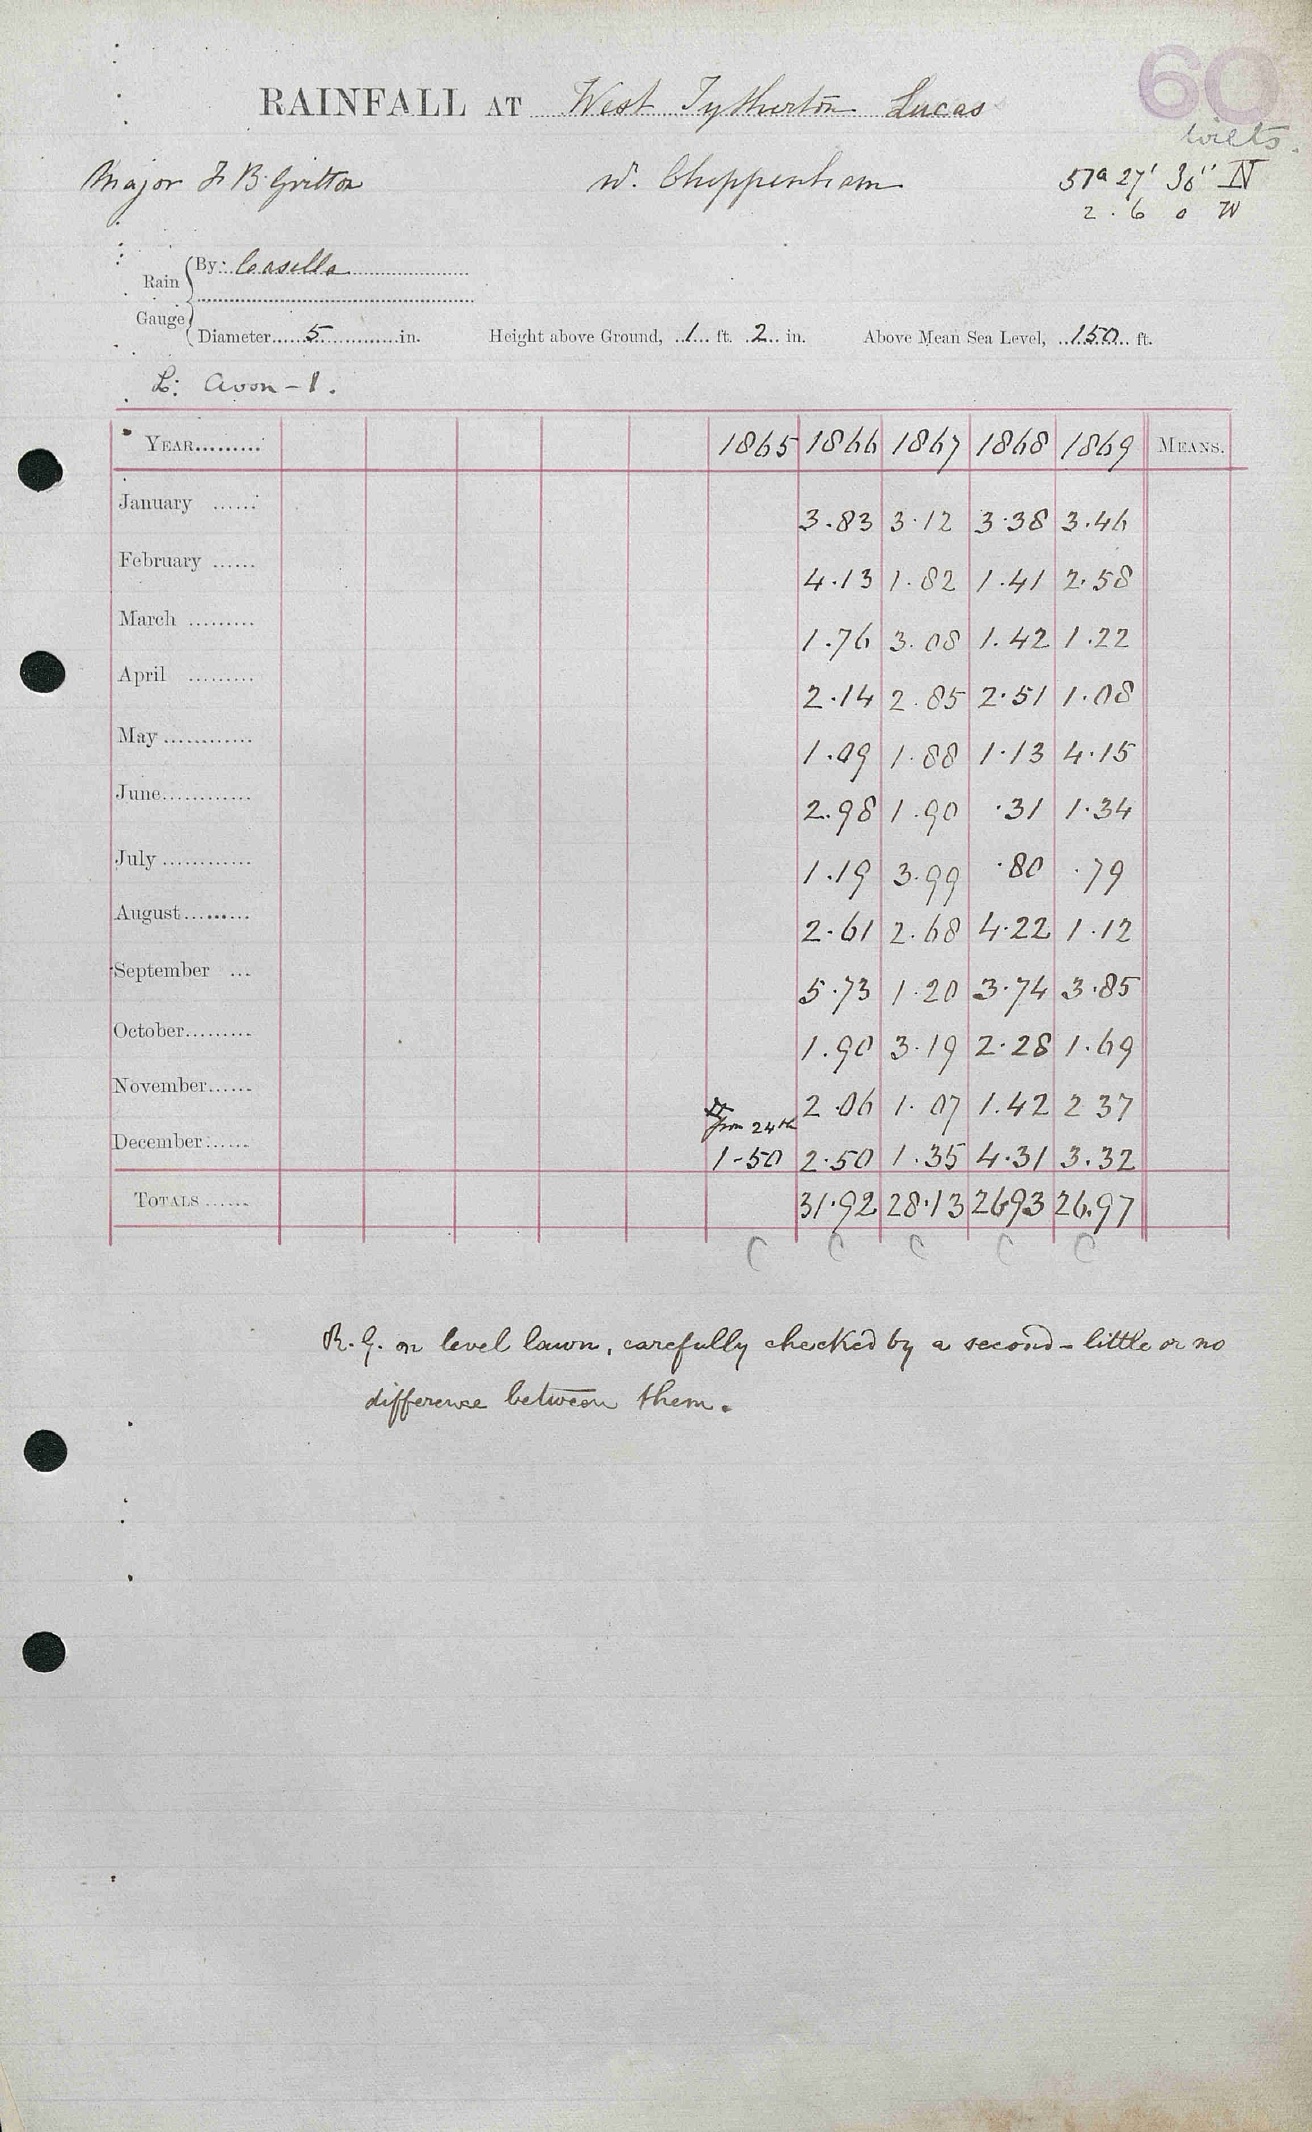 60
RAINFALL AT West Tytherton Lucas
Wilts.
Major F B. Gritton nr. Chippenham 51° 27' 30" N
2 . 6 0 W
Rain Gauge By: Casella
Diameter 5 in. Height above Ground, 1 ft. 2 in. Above Mean Sea Level, 150 ft.
L: Avon - 1.
YEAR 1865 1866 1867 1868 1869 MEANS.
January 3.83 3.12 3.38 3.46
February 4.13 1.82 1.41 2.58
March 1.76 3.08 1.42 1.22
April 2.14 2.85 2.51 1.08
May 1.09 1.88 1.13 4.15
June 2.98 1.90 .31 1.34
July 1.19 3.99 .80 .79
August 2.61 2.68 4.22 1.12
September 5.73 1.20 3.74 3.85
October 1.90 3.19 2.28 1.69
November 2.06 1.07 1.42 2 37
from 24th
December 1-50 2.50 1.35 4.31 3.32
TOTALS 31.92 28.13 2693 26.97
C C C C C
R. G. on level lawn, carefully checked by a second - little or no
difference between them.